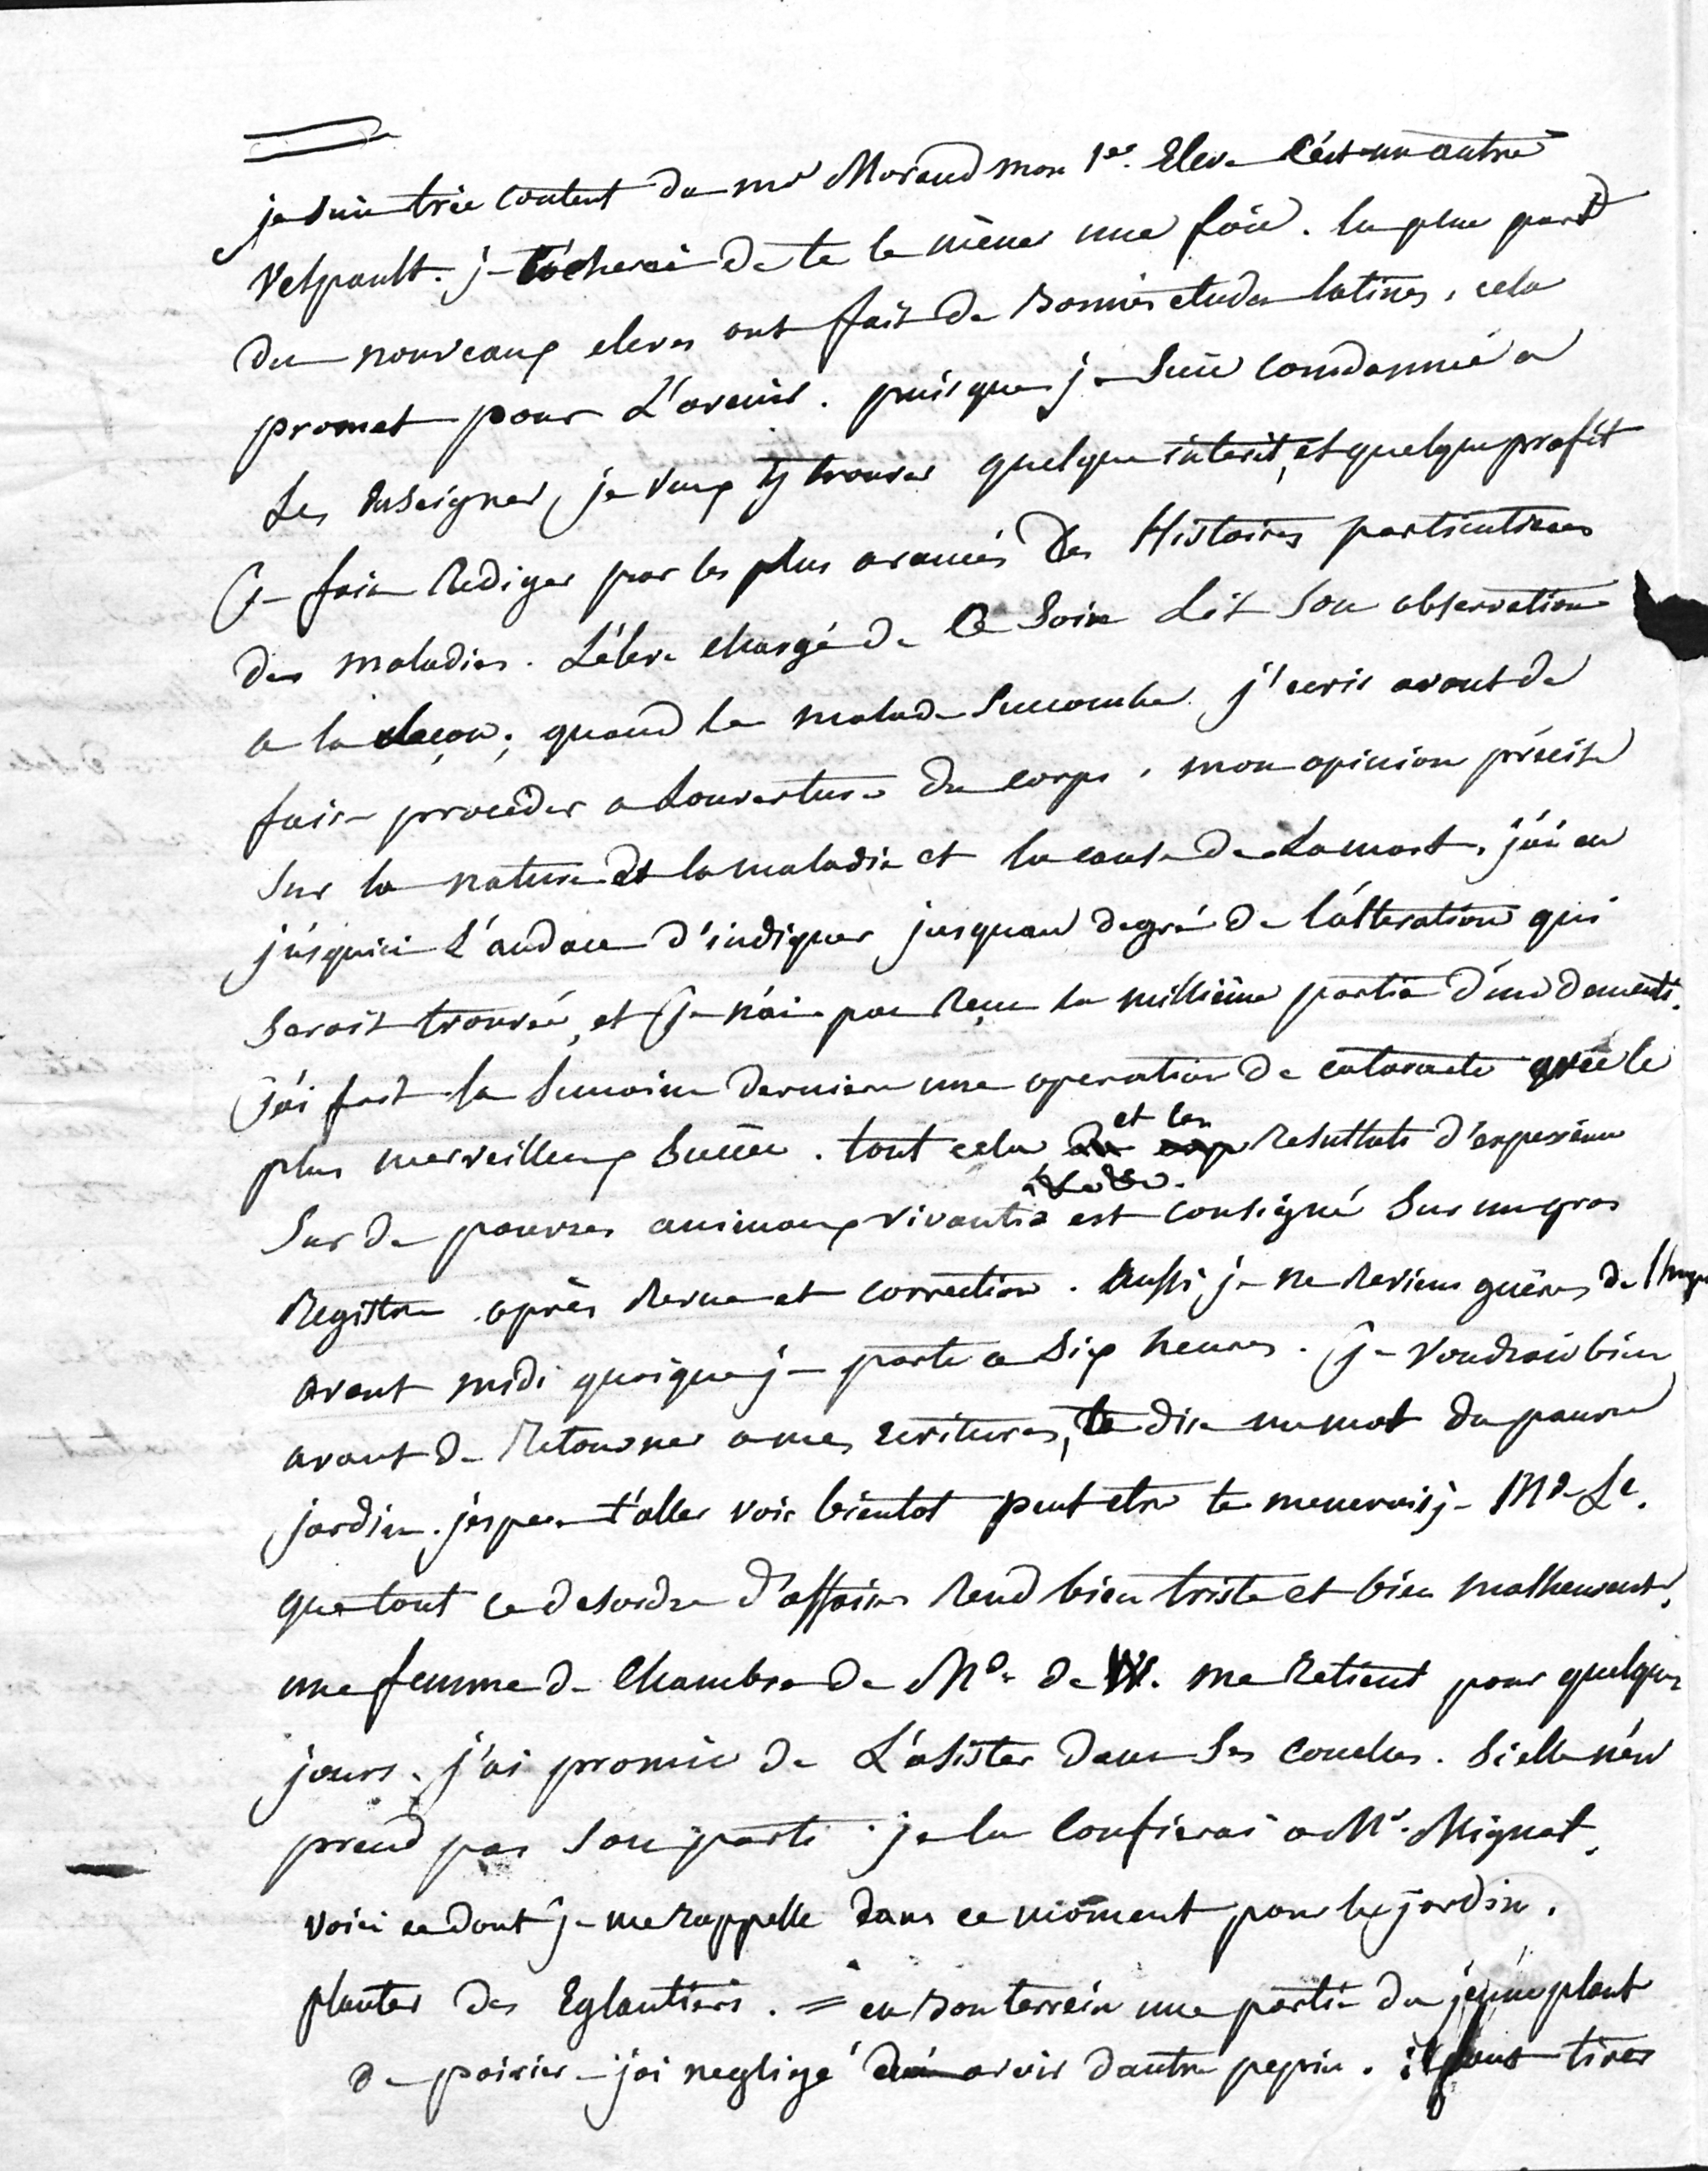 je suis très content de mr Morand mon 1er. Eleve c'est un autre
Velpault. je tácherai de te le mèner une fois. la plus part
des nouveaux eleves ont fait de bonnes etudes latines, cela
promet pour L'avenir. puisque je suis condamné a
Les enseigner, je veux y trouver quelque interêt, et quelque profit
Je fais rediger par les plus avancés des Histoires particulieres
des maladies. L'éleve chargé de ce soin Lit son observation
a la leçon; quand le malade succombe j'ecris avant de
faire procéder a Louverture du corps, mon opinion précise
sur la nature de la maladie et la cause de La mort. j'ai eu
jusquici L'audace d'indiquer jusquau degré de l'altération qui
seroit trouvée, et je n'ai pas reçu la millième partie d'un dementi.
J'ai fait la semaine derniere une operation de cataracte avec le
plus merveilleux succès. tout cela et les resultats d'experience
sur de pauvres animaux vivants est consigné sur un gros
Registre après revue et correction. Aussi je ne reviens guères de l'hop
avant midi quoique je parte a six heures. Je voudrois bien
avant de retourner a mes ecritures, te dire un mot du pauvre
jardin. j'espere t'aller voir bientot peut etre te menerois je Me Le.
que tout ce desordre d'affaires rend bien triste et bien malheureuse.
une femme de chambre de Mde de W. me retient pour quelques
jours. j'ai promis de L'asister dans ses couches. si elle n'en
prend pas son parti je la confierai a Mr. Mignot.
voici ce dont je me rappelle dans ce moment pour le jardin.
planter des Eglantiers. = en bon terrein une partie du jeune plant
de poirier - j'ai negligé d'avoir d'autre pepin. il faut tirer